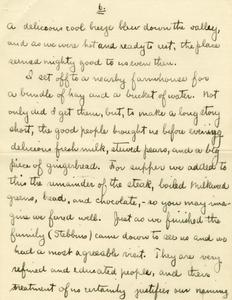 6.
A delicious cool breeze blew down the valley,
and as we were hot and ready to rest, the place
seemed mighty good to us even then.
I set off to a nearby farmhouse for
a bundle of hay and a bucket of water. Not
only did I get them, but, to make a long story
short, the good people brought us before evening
delicious fresh milk, stewed pears, and a big
piece of gingerbread. For supper we added to
this the remainder of the steak, boiled Milkweed
greens, bread, and chocolate, - so you may ima-
gine we fared well. Just as we finished the
family (Stebbins) came down to see us and we
had a most agreeable visit. They are very
refined and educated people, and their
treatment of us certainly justifies our naming